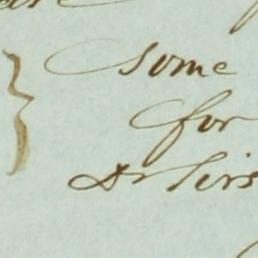 Some
for
Dr Sirs